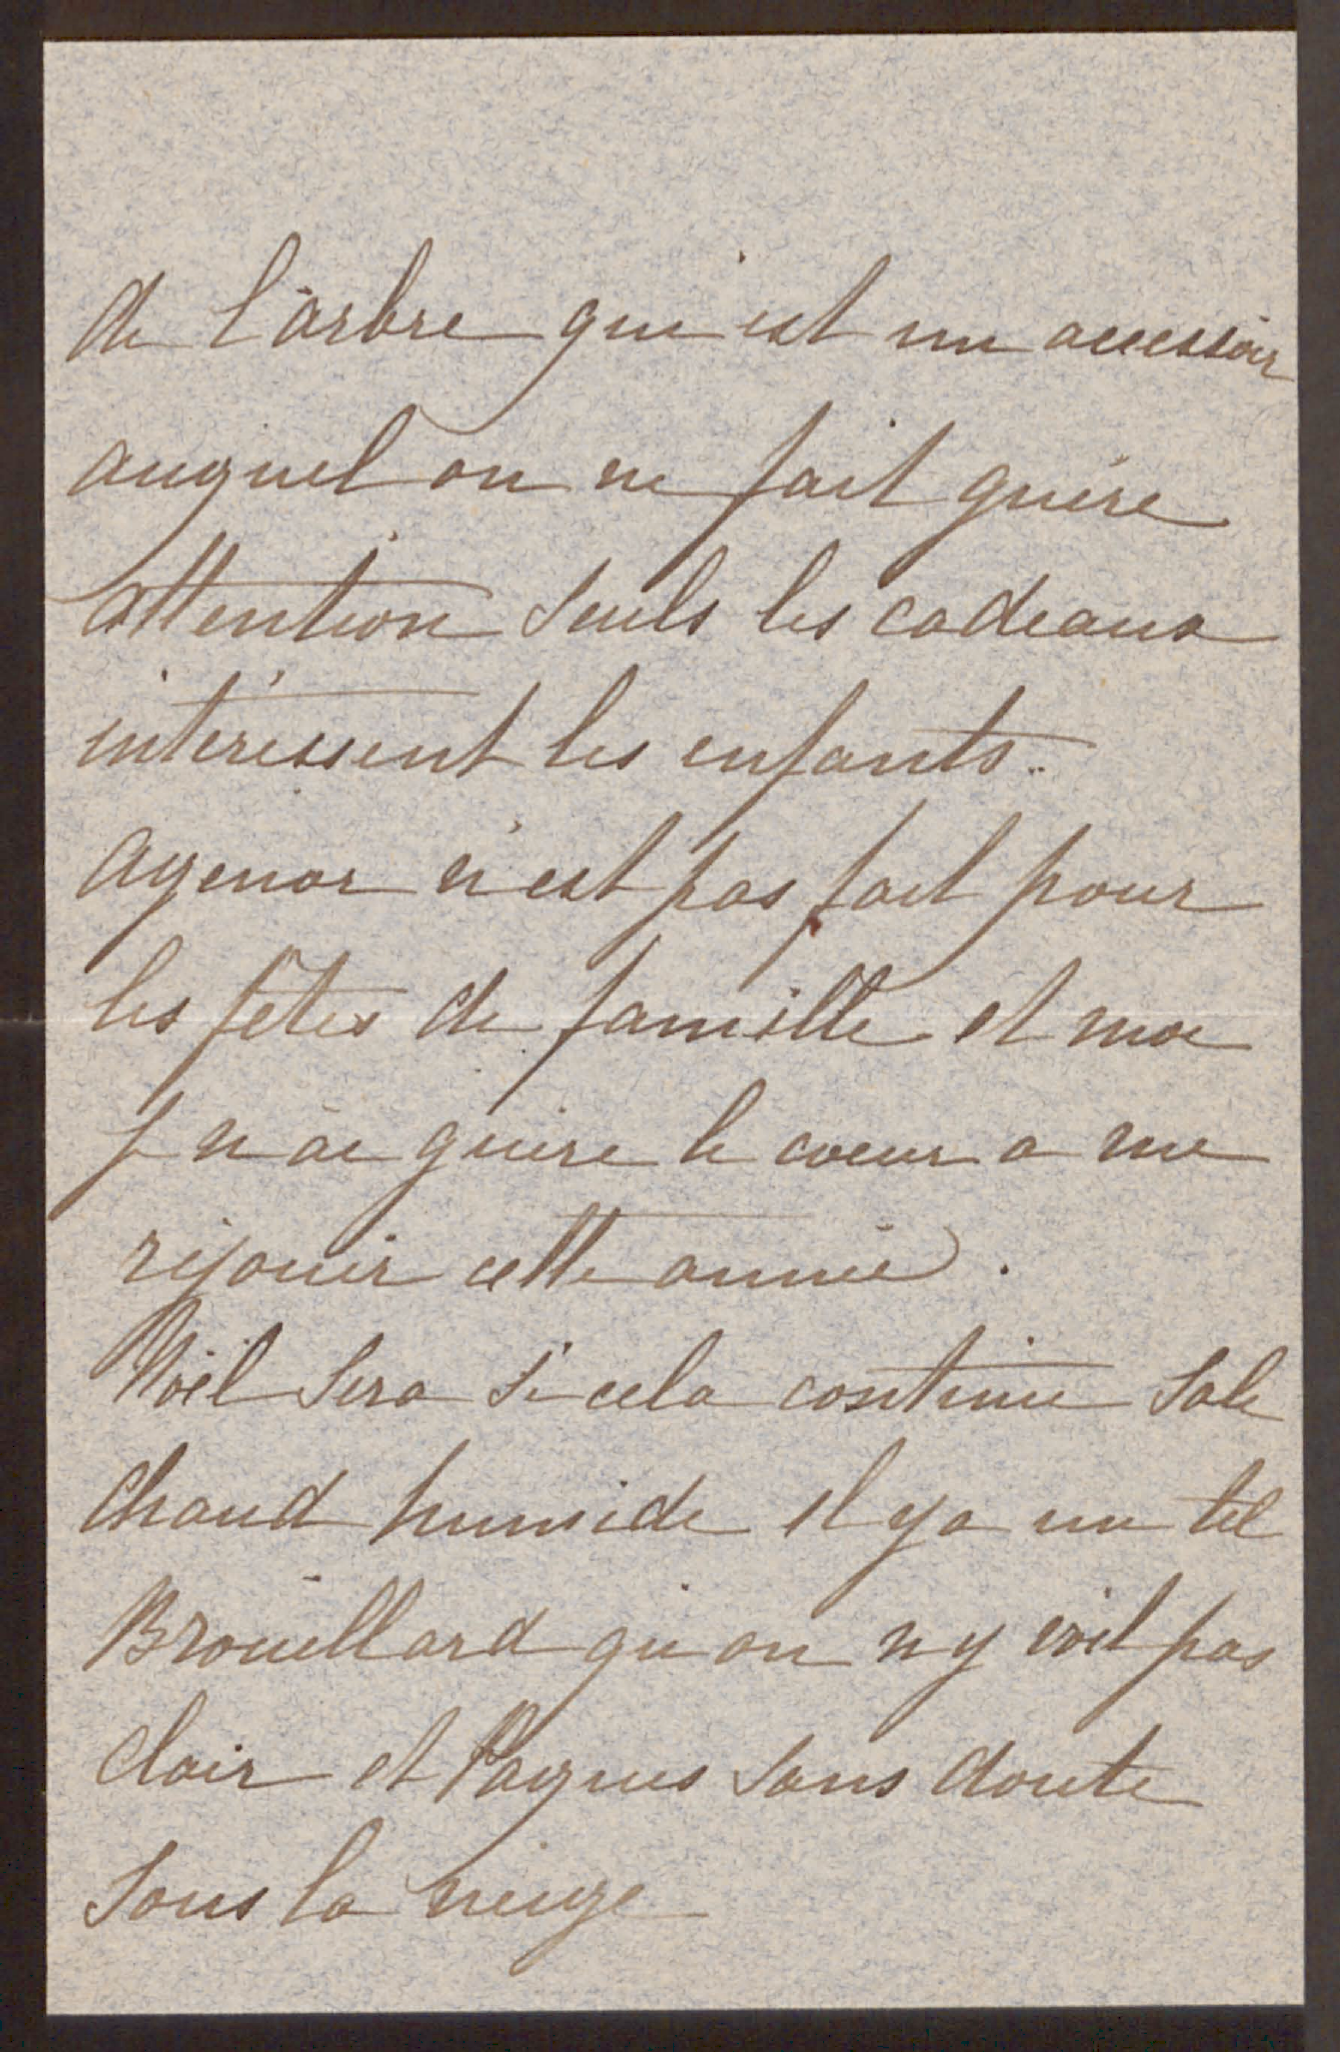 de l'arbre qui est un accessoir
auquel on ne fait guère
attention Seuls les cadeaux
intéressent les enfants.
Agenor n'est pas fait pour
les fêtes de famille et moi
j n'ai guère le coeur a me
réjouir cette année.
Noël Sera Si cela continue Sale
Chaud humide il y a un tel
Brouillard qu'on n y voit pas
Clair et Paques Sans doute
Sous la neige